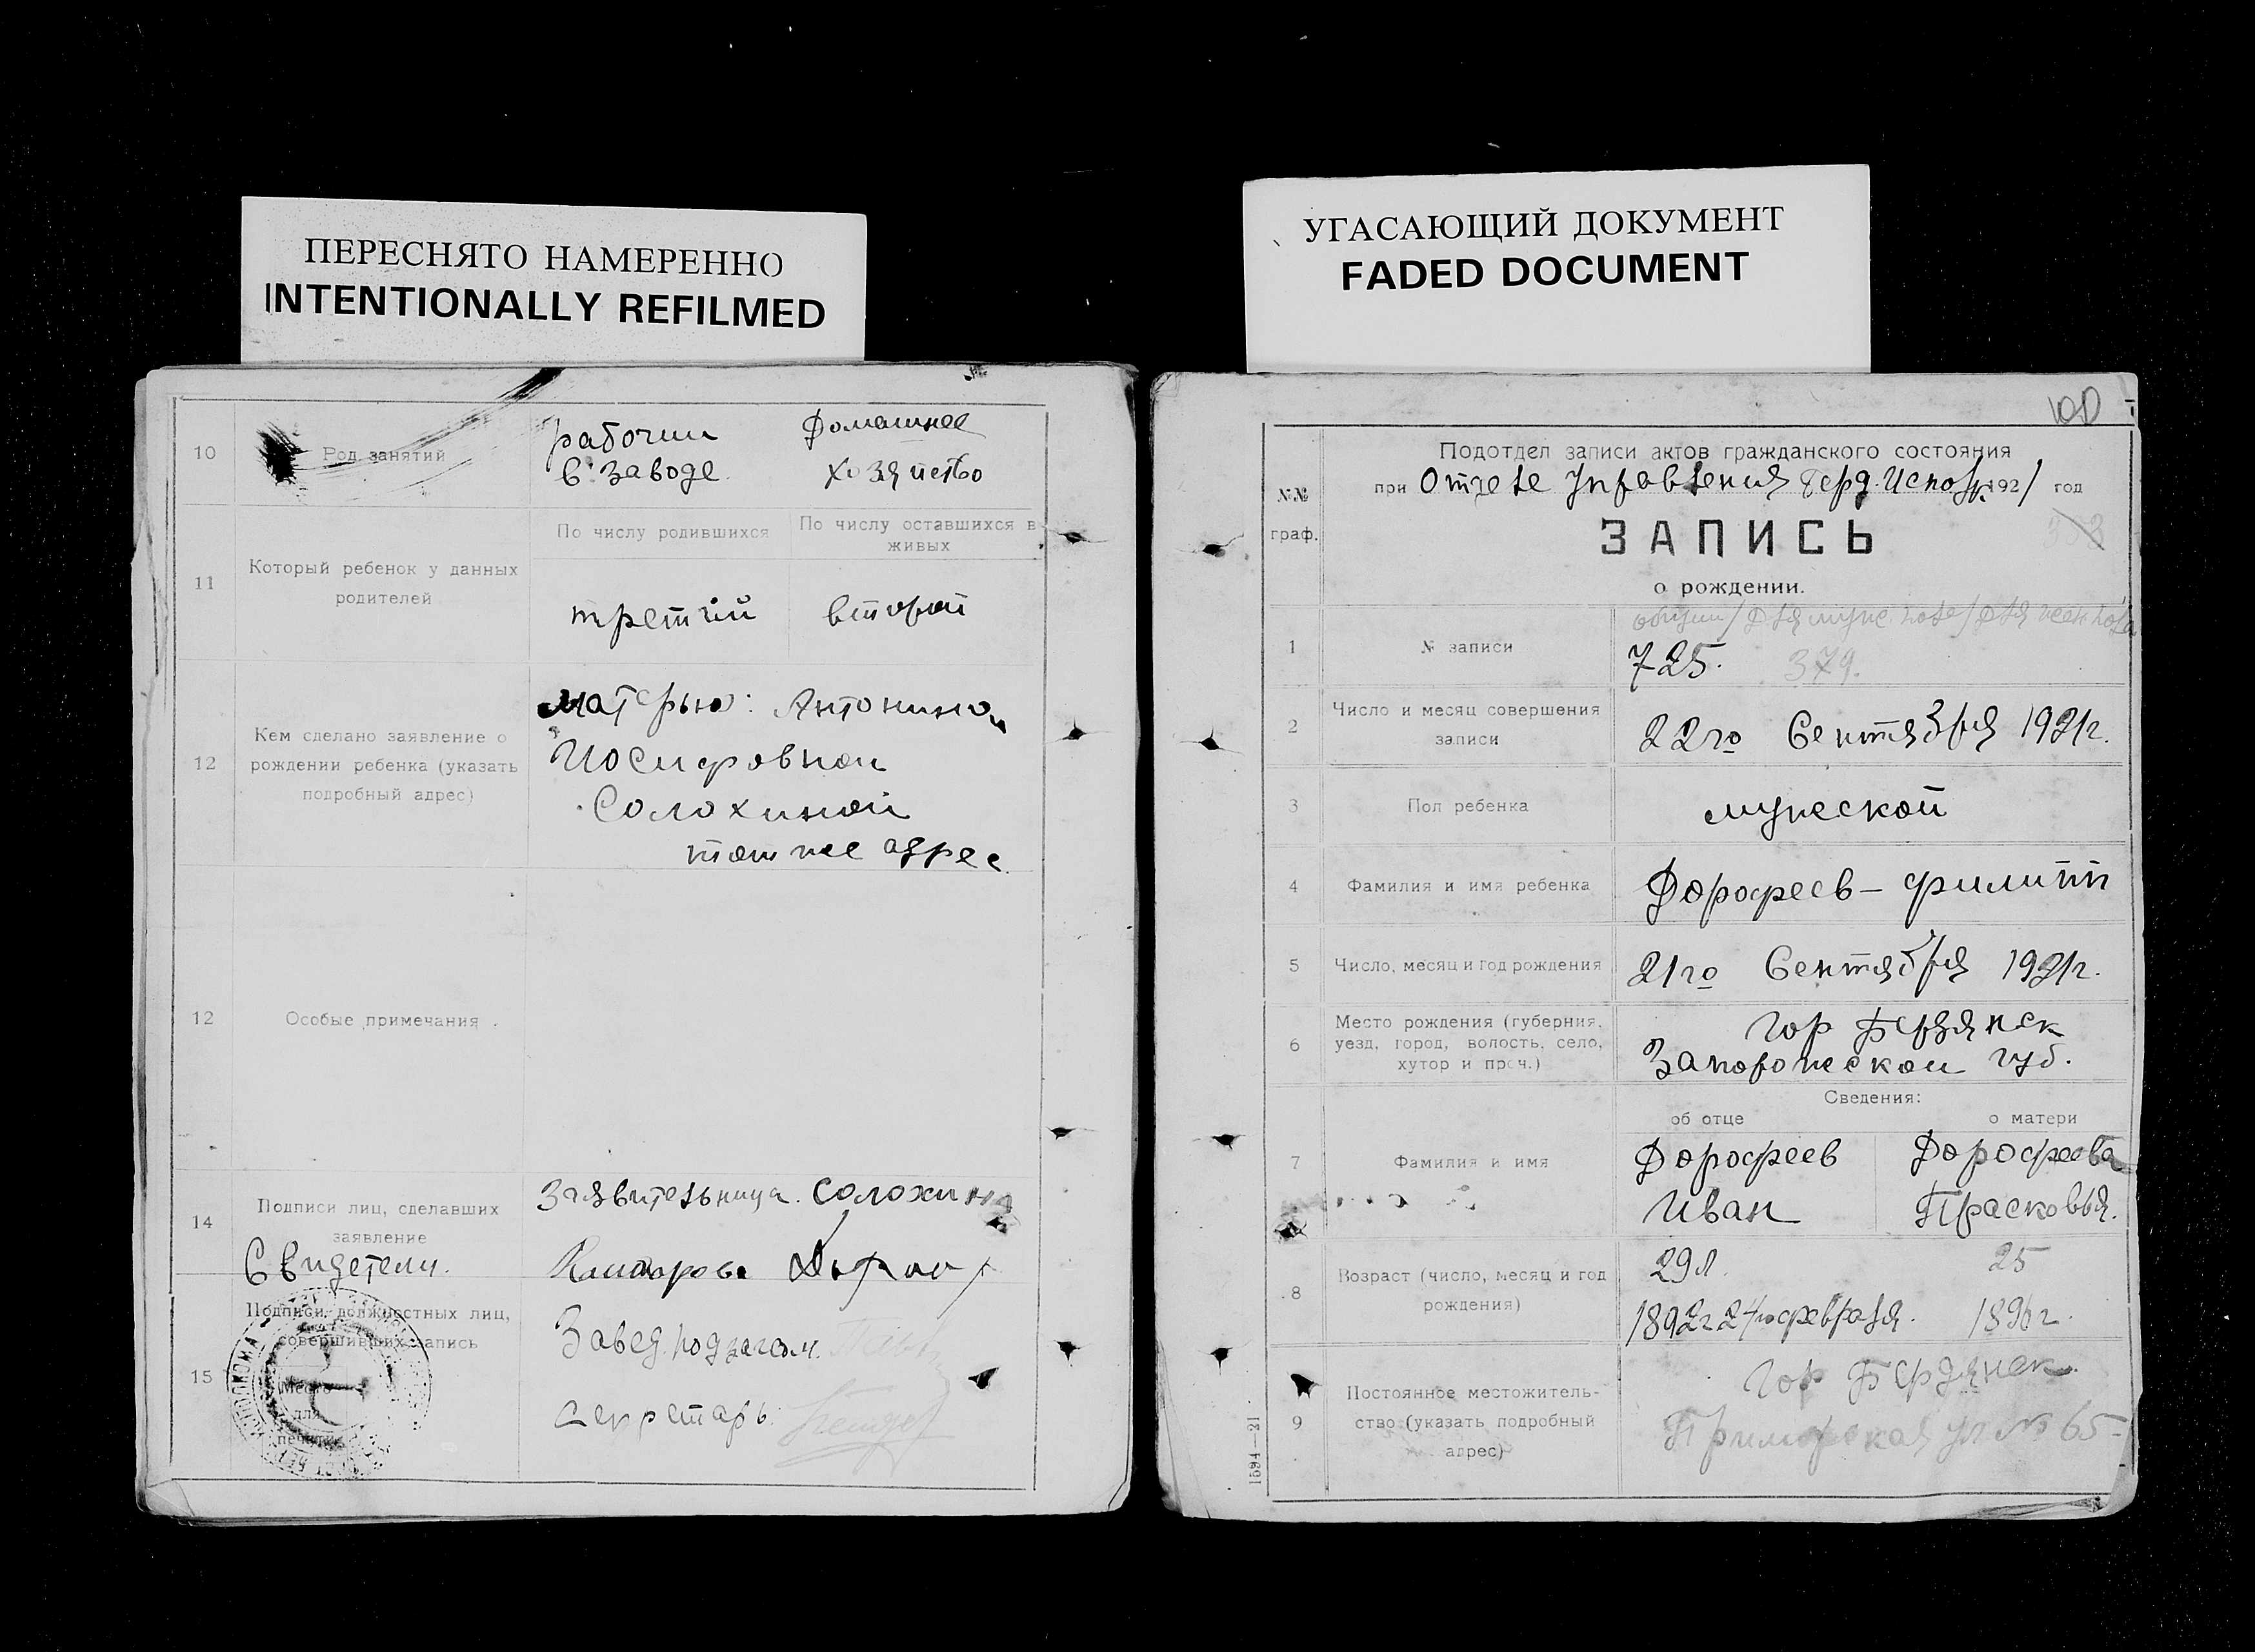 ПЕРЕСНЯТО НАМЕРЕННО
INTENTIONALLY REFILMED
10
Род занятий
рабочий
в заводе
Домашнее
хозяйство
11
Который ребенок у данных
родителей
По числу родившихся
По числу оставшихся в
живых
третий
второй
12
Кем сделано заявление о
рождении ребенка (указать
подробный адрес)
матерью: Антониной
Иосифовной
Солохиной
тот же адрес
12
Особые примечания
14
Подписи лиц, сделавших
заявление
Свидетели.
Заявительница. Солохина
15
Подписи должностных лиц,
совершивших запись
Место
для
печати
Завед. подзагом.
Секретарь:
УГАСАЮЩИЙ ДОКУМЕНТ
FADED DOCUMENT
100
№№
граф.
Подотдел записи актов гражданского состояния
при Отделе Управления Берд. Исполк. 1921 год
ЗАПИСЬ
о рождении.
1
№ записи
общий/для муж. пола/для жен пола
725. 379.
2
Число и месяц совершения
записи
22го Сентября 1921г.
3
Пол ребенка
мужеской
4
Фамилия и имя ребенка
Дорофеев - филипп
5
Число, месяц и год рождения
21го Сентября 1921г.
6
Место рождения (губерния,
уезд, город, волость, село,
хутор и проч.)
гор Бердянск
Запорожской губ.
Сведения:
об отце
о матери
7
Фамилия и имя
Дорофеев
Иван
Дорофеева
Прасковья.
8
Возраст (число, месяц и год
рождения)
29л.
1892г 24го февраля.
25
1896г.
9
Постоянное местожитель-
ство (указать подробный
адрес)
Гор Бердянск.
Приморская ул № 65
1694—21